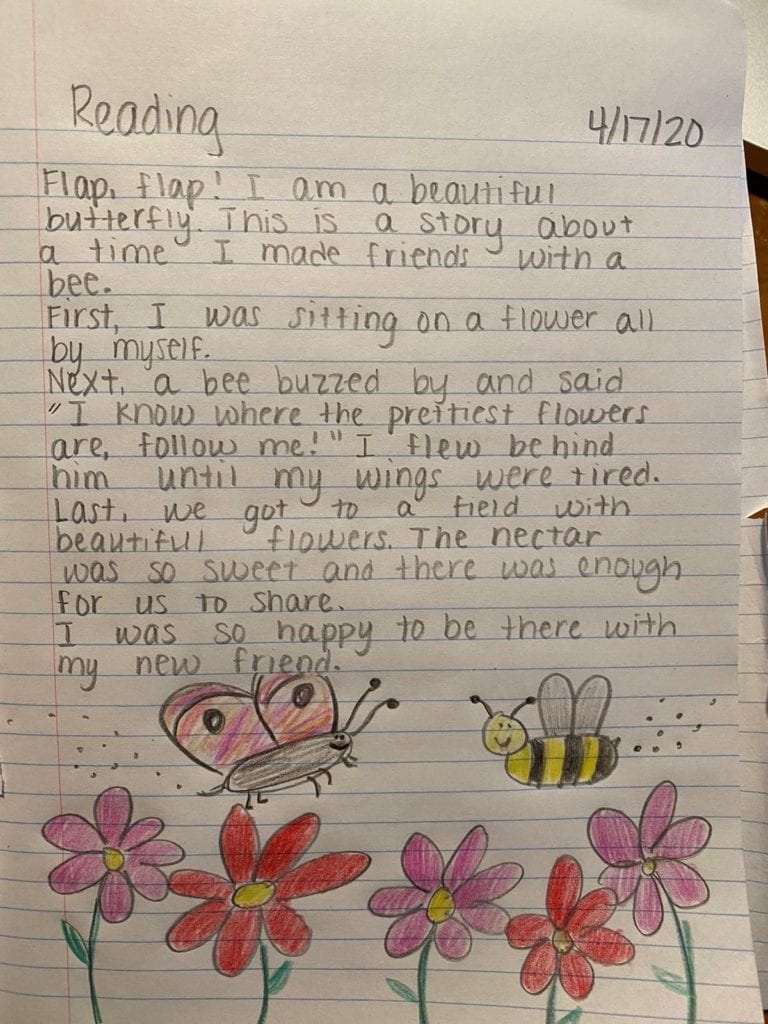 Reading 4/17/20
Flap, flap! I am a beautiful
butterfly. This is a story about
a time I made friends with a
bee.
First, I was sitting on a flower all
by myself.
Next, a bee buzzed by and said
"I know where the prettiest flowers
are, follow me!" I flew behind
him until my wings were tired.
Last, we got to a field with
beautiful flowers. The nectar
was so sweet and there was enough
for us to share.
I was so happy to be there with
my new friend.